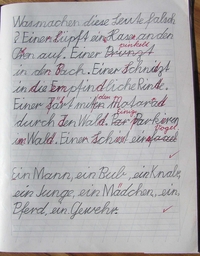 Was machen diese Leute falsch
? Einer lüpft ein Rasen an den
Ofen auf. Einer pinkelt
in den Bach. Einer schnitzt
in die Empfindliche Rinde.
Einer fährt mit dem Motorrad
durch den Wald. Einige Parkieren
im Wald. Einer schiest ein Vogel
Ein Mann, ein Bub, ein Knabe,
ein Junge, ein Mädchen, ein
Pferd, ein Gewehr.